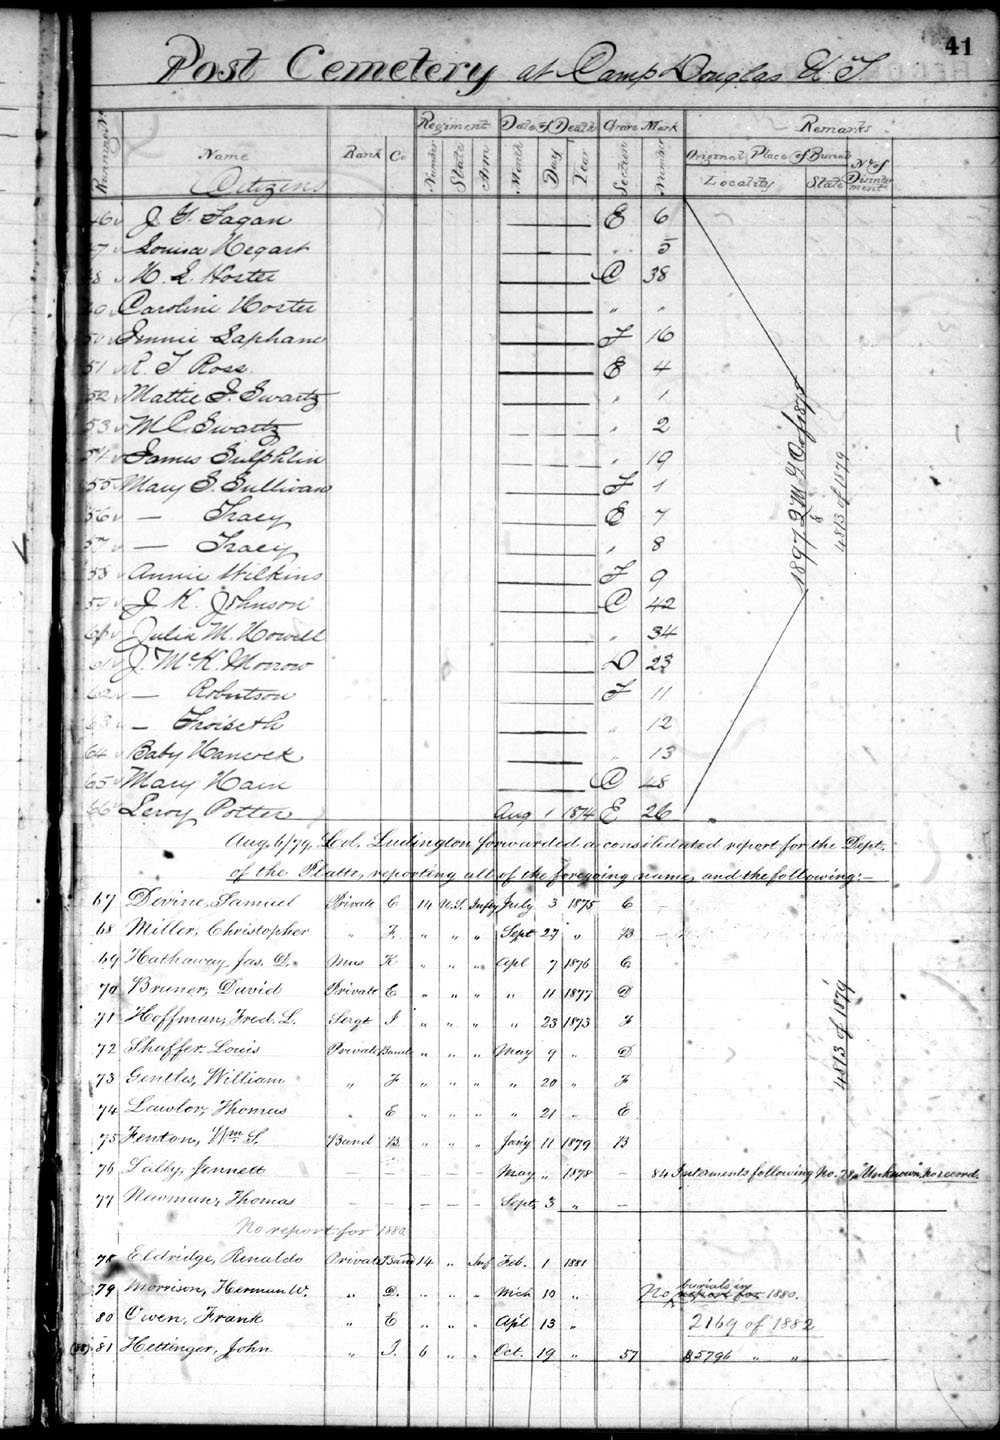 41
Post Cemetery at Camp Douglas U. T.
Running No. Name Rank Co Regiment Date of Death Grave Mark Remarks
Number State Arm Month Day Year Section Number Original Place of Burial No. of Disinterment
Locality State
Citizens
46 J. G. Fagan E 6
47 Louisa Hegart " 5
48 H. L. Hoster C 38
Caroline Hoster " "
50 Jennie Laphame F 16
51 R. T. Ross E 4
52 Mattie J. Swartz " 1
53 M C Swartz " 2
54 James Sulphlin " 19
55 Mary G. Sullivan F 1
56 — Tracy E 7
57 — Tracy " 8
58 Annie Wilkins F 9
59 J. K. Johnson C 42
60 Julia M. Howell " 34
61 J. McK. Morrow D 23
62 — Robertson F 11
63 — Troiseth " 12
64 Baby Hancock " 13
65 Mary Hain C 48
66 Leroy Potter Aug 1 1874 E 26
1897 Q M G O of 1875
&
4813 of 1879
Aug. 6/79, Col. Ludington forwarded a consolidated report for the Dept.
of the Platte, reporting all of the foregoing names and the following:—
67 Devine, Samuel Private C 14 U.S. Infty July 3 1875 C
68 Miller, Christopher " F. " " " Sept 27 " B
69 Hathaway, Jas. D. Mus K " " " Apl 7 1876 C
70 Bruner, David Private E " " " " 11 1877 D
71 Hoffman, Fred. L. Sergt I " " " " 23 1873 F
72 Shaffer. Louis Private Band " " " May 9 " D
73 Gentles, William " F " " " " 20 " F
74 Lawlor, Thomas " E " " " " 21 " E
75 Fenton, Wm S. Band B. " " " Jany 11 1879 B
76 Lally, Jennett — — — — — May " 1878 — 84 Interments following No. 78, "Unknown", no record.
77 Newman, Thomas — — — — — Sept. 3 " —
4813 of 1879
No report for 1880
78 Eldridge, Rinaldo Private Band 14 " Inf Feb. 1 1881
79 Morrison, Herman W. " D. " " " Mch 10 " No burials in report for 1880.
80 Owen, Frank " E " " " Apl 13 " 2169 of 1882
81 Hettinger, John " I. 6 " " Oct. 19 " 57 5796 " "